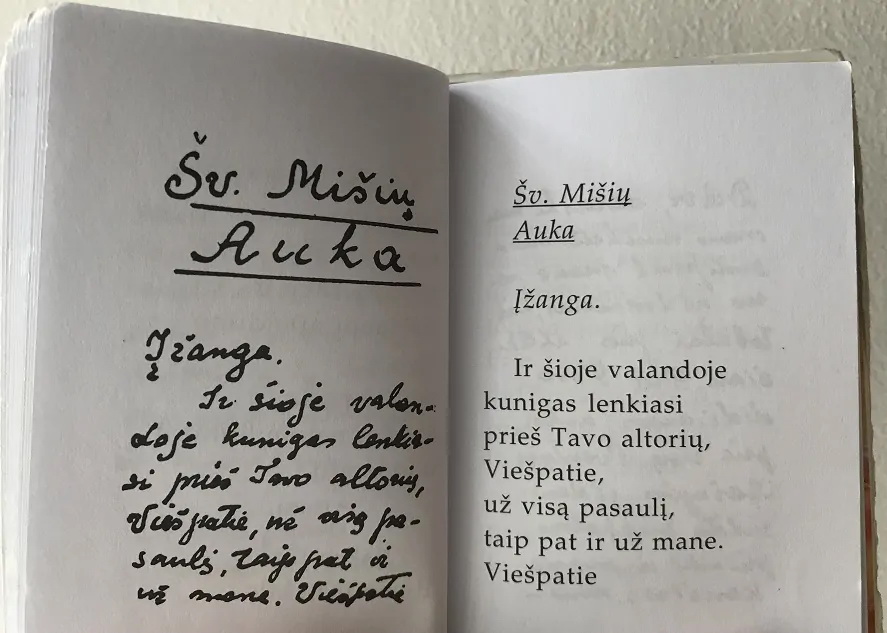 Šv. Mišių
Auka
Įžanga.
Ir šioje valan-
doje kunigas lenkia-
si prieš Tavo altorių,
Viešpatie, už visą pa-
saulį, taip pat ir
už mane. Viešpatie
Šv. Mišių
Auka
Įžanga.
Ir šioje valandoje
kunigas lenkiasi
prieš Tavo altorių,
Viešpatie,
už visą pasaulį,
taip pat ir už mane.
Viešpatie